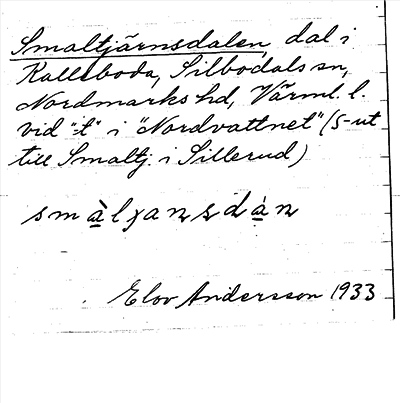 Smaltjärnsdalen, dal i
Kalleboda, Silbodals sn,
Nordmarks hd, Värml. l.
vid "t" i "Nordvattnet" (S-ut
till Smaltj. i Sillerud)
Elov Andersson 1933